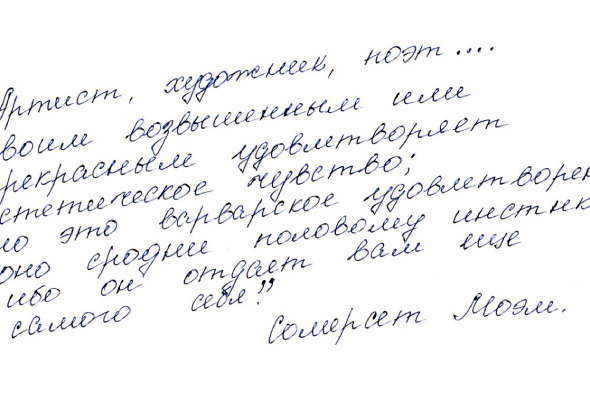 Артист, художник, поэт....
воим возвышенным или
рекрасным удовлетворяет
стетическое чувство;
но это варварское удовлетворен
оно сродни половому инстнк
ибо он отдает вам еще
самого себя!"
Сомерсет Моэм.